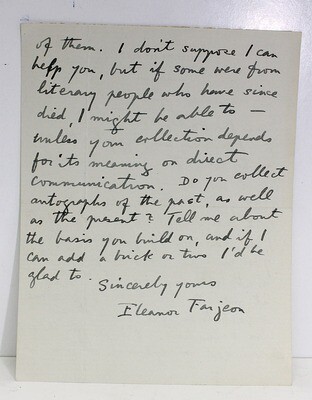 of them. I don't suppose I can
help you, but if some were from
literary people who have since
died, I might be able to —
unless your collection depends
for its meaning on direct
communication. Do you collect
autographs of the past, as well
as the present? Tell me about
the basis you build on, and if I
can add a brick or two I'd be
glad to.
Sincerely yours
Eleanor Farjeon